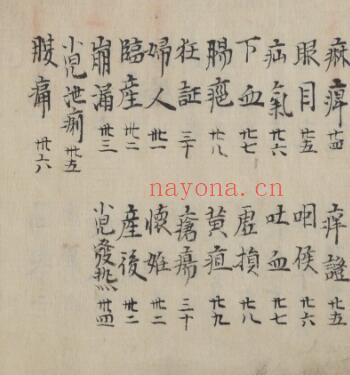 麻痺 廿四 痒證 廿五
眼目 廿五 咽候 廿六
疝氣 廿六 吐血 廿七
下血 廿七 虛損 廿八
腸 廿八 黄疸 廿九
狂証 三十 瘡瘍 三十
婦人 卅一 懷姙 卅二
臨産 卅二 産後 卅二
崩漏 卅三 小児發熱 卅四
小児泄痢 卅五
腹痛 卅六
nayona.cn